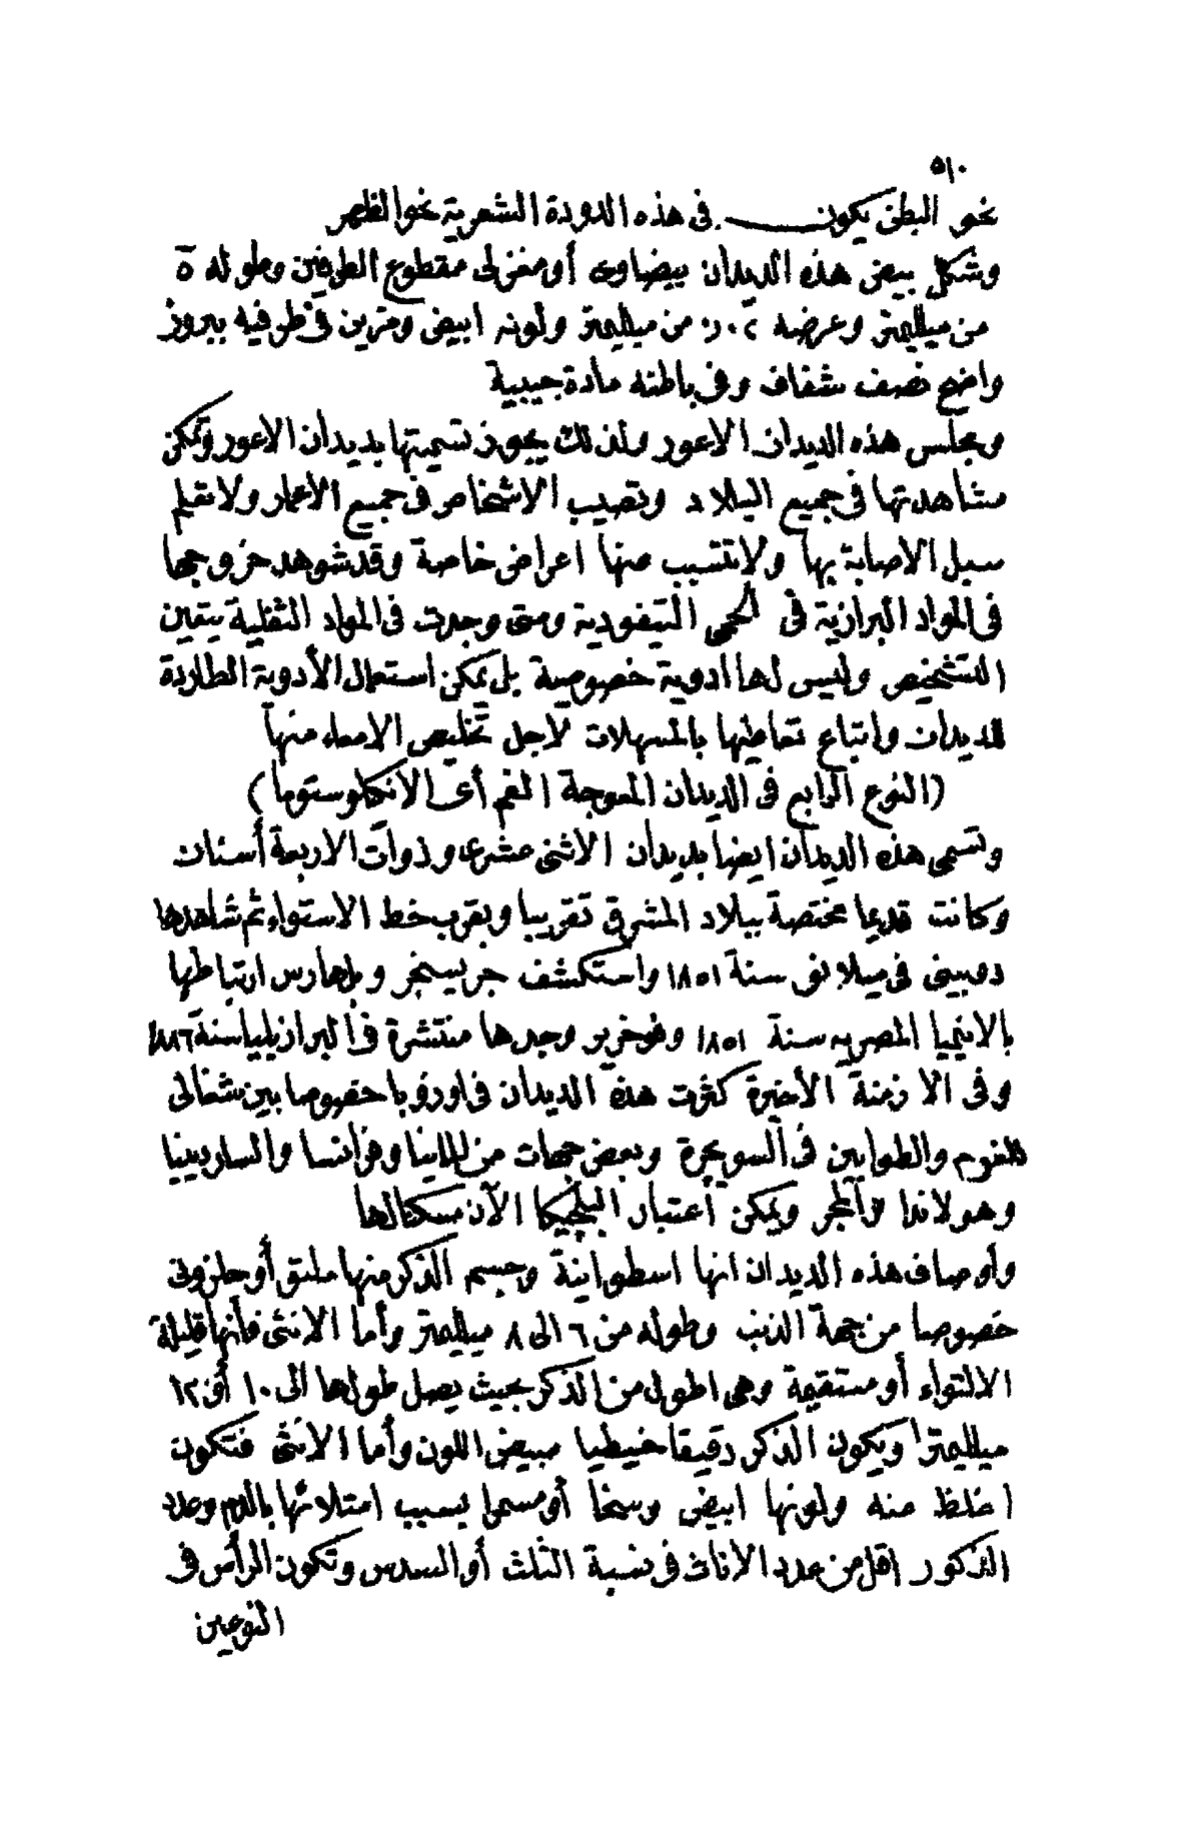 ٥١٠
نحو البطن يكون في هذه الدودة الشعرية نحو الظهر
وشكل بيض هذه الديدان بيضاوى أو مغزلى مقطوع الطرفين وطوله ٥
من ميلليمتر وعرضه ٠٢ر٠ من ميلليمتر ولونه ابيض ومزين في طرفيه ببروز
واضح نصف شفاف وفى باطنه مادة حبيبية
ومجلس هذه الديدان الاعور ولذلك يجوز تسميتها بديدان الاعور ويمكن
مشاهدتها فى جميع البلاد وتصيب الاشخاص فى جميع الأعمار ولا تعلم
سبل الاصابة بها ولا تتسبب عنها اعراض خاصة وقد شوهد خروجها
فى المواد البرازية فى الحمى التيفودية ومتى وجدت فى المواد الثفلية يتعين
التشخيص وليس لها ادوية خصوصية بل يمكن استعمال الأدوية الطاردة
للديدان واتباع تعاطيها بالمسهلات لاجل تخليص الامعاء منها
(النوع الرابع فى الديدان المعوجة الفم أى الانكلوستوما)
وتسمى هذه الديدان ايضا بديدان الاثنى عشرى وذوات الاربعة أسنان
وكانت قديما مختصة ببلاد المشرق تقريبا وبقرب خط الاستواء ثم شاهدها
دوبينى فى ميلانو سنة ١٨٥١ واستكشف جريسنجر وبلهارس ارتباطها
بالانيميا المصريه سنة ١٨٥١ وفوخرير وجدها منتشرة فى البرازيليا سنة ١٨٨٦
وفى الازمنة الأخيرة كثرت هذه الديدان فى اوروبا خصوصا بين شغالى
الفحوم والطوابين فى السويچرة وبعض جهات من ايطاليا وفرانسا والساردينيا
وهولاندا والمجر ويمكن أعتبار البلجيكا الآن مسكنا لها
وأوصاف هذه الديدان انها اسطوانية وجسم الذكر منها ملتو أو حلزونى
خصوصا من جهة الذنب وطوله من ٦ الى ٨ ميلليمتر وأما الانثى فأنها قليلة
الالتواء أو مستقيمة وهى اطول من الذكر بحيث يصل طولها الى ١٠ أو ١٢
ميلليمترا ويكون الذكر دقيقا خيطيا مبيض اللون وأما الانثى فتكون
اغلظ منه ولونها ابيض وسخا أو مسمرا بسبب امتلائها بالدم وعدد
الذكور اقل من عدد الاناث فى نسبة الثلث أو السدس وتكون الرأس فى
النوعين